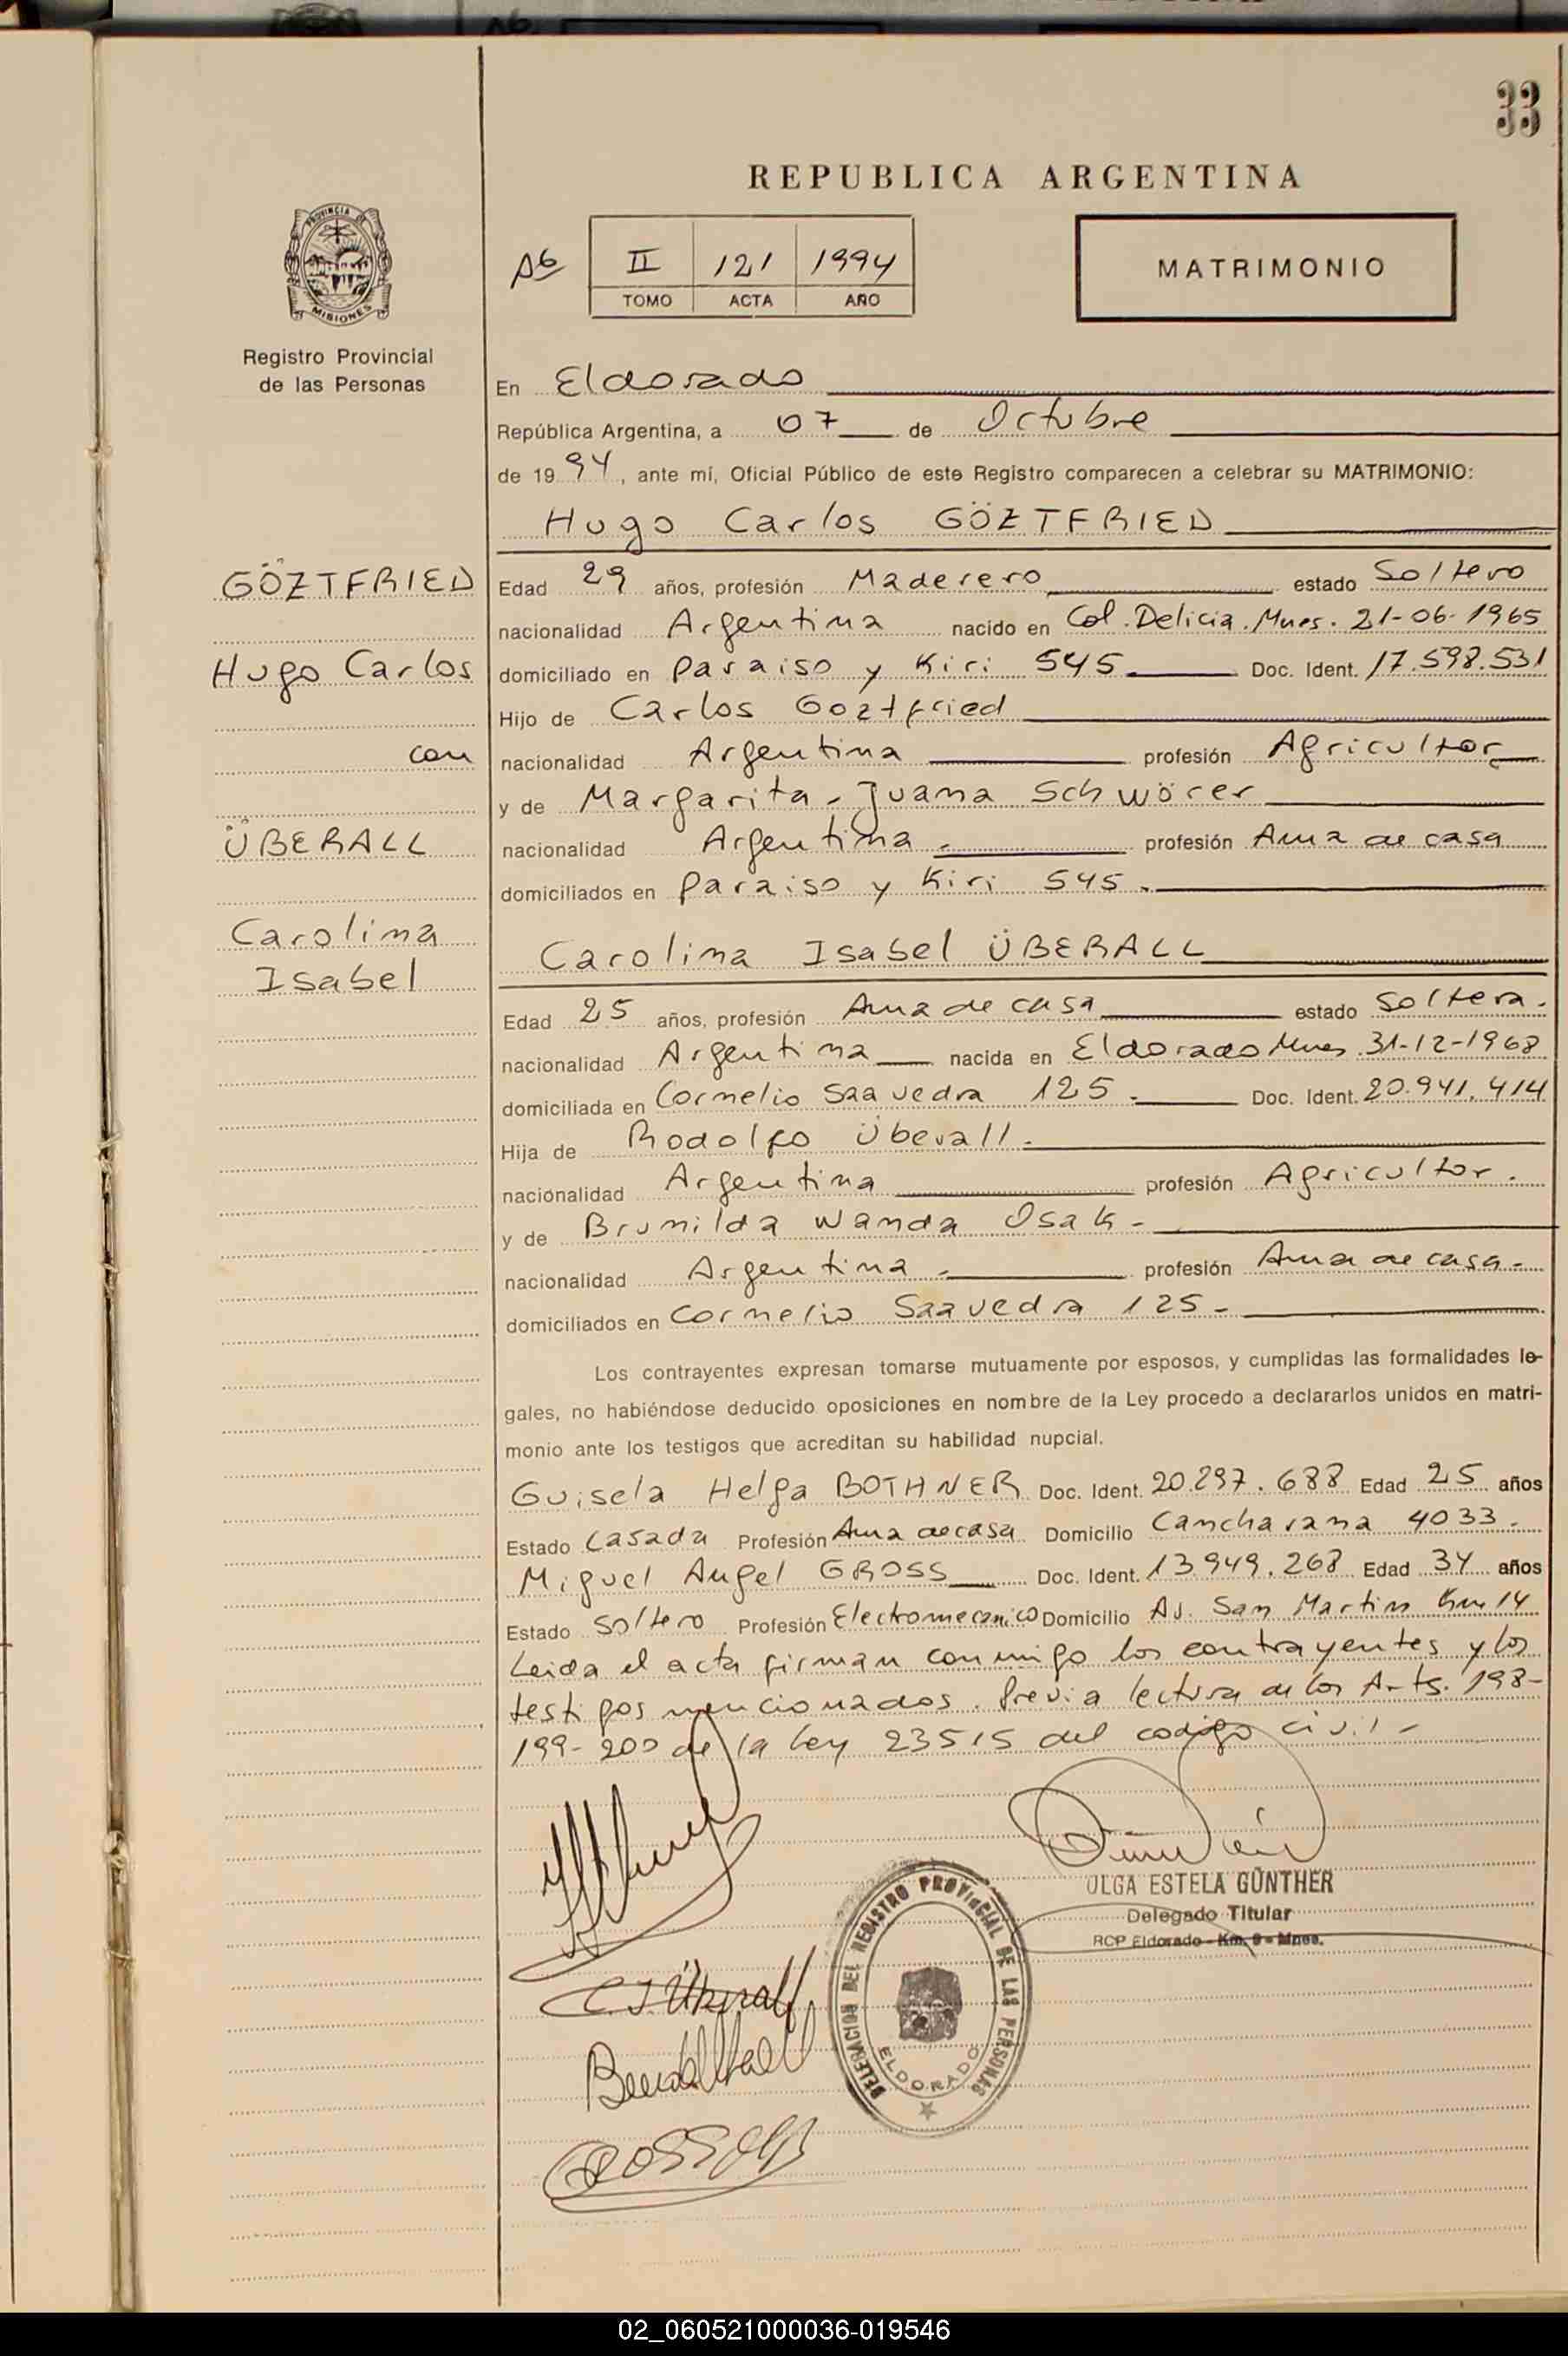 33
REPUBLICA ARGENTINA
PROVINCIA DE MISIONES
Registro Provincial
de las Personas
II 121 1994
TOMO ACTA AÑO
MATRIMONIO
En Eldorado
República Argentina, a 07 de Octubre
de 1994, ante mí, Oficial Público de este Registro comparecen a celebrar su MATRIMONIO:
Hugo Carlos GÖZTFRIED
GÖZTFRIED
Hugo Carlos
con
ÜBERALL
Carolina
Isabel
Edad 29 años, profesión Maderero estado Soltero
nacionalidad Argentina nacido en Col. Delicia. Mnes. 21-06-1965
domiciliado en Paraiso y Kiri 545 Doc. Ident. 17.598.531
Hijo de Carlos Goztfried
nacionalidad Argentina profesión Agricultor
y de Margarita - Juana Schwörer
nacionalidad Argentina profesión Ama de casa
domiciliados en Paraiso y Kiri 545.
Carolina Isabel ÜBERALL
Edad 25 años, profesión Ama de casa estado Soltera.
nacionalidad Argentina nacida en Eldorado Mnes 31-12-1968
domiciliada en Cornelio Saavedra 125. Doc. Ident. 20.941.414
Hija de Rodolfo Überall.
nacionalidad Argentina profesión Agricultor.
y de Brunilda Wanda Osak-
nacionalidad Argentina - profesión Ama de casa-
domiciliados en Cornelio Saavedra 125-
Los contrayentes expresan tomarse mutuamente por esposos, y cumplidas las formalidades le-
gales, no habiéndose deducido oposiciones en nombre de la Ley procedo a declararlos unidos en matri-
monio ante los testigos que acreditan su habilidad nupcial.
Guisela Helga BOTHNER Doc. Ident. 20.297.688 Edad 25 años
Estado Casada Profesión Ama de casa Domicilio Cancharana 4033-
Miguel Angel GROSS Doc. Ident. 13.949.268 Edad 34 años
Estado Soltero Profesión Electromecanico Domicilio Av. San Martin Km 14
Leida el acta firman conmigo los contrayentes y los
testigos mencionados. Previa lectura de los Arts. 198-
199-200 de la Ley 23515 del codigo civil-
OLGA ESTELA GÜNTHER
Delegado Titular
RCP Eldorado - Km. 9 - Mnes.
DELEGACION DEL REGISTRO PROVINCIAL DE LAS PERSONAS
ELDORADO
C I Überall
02_060521000036-019546